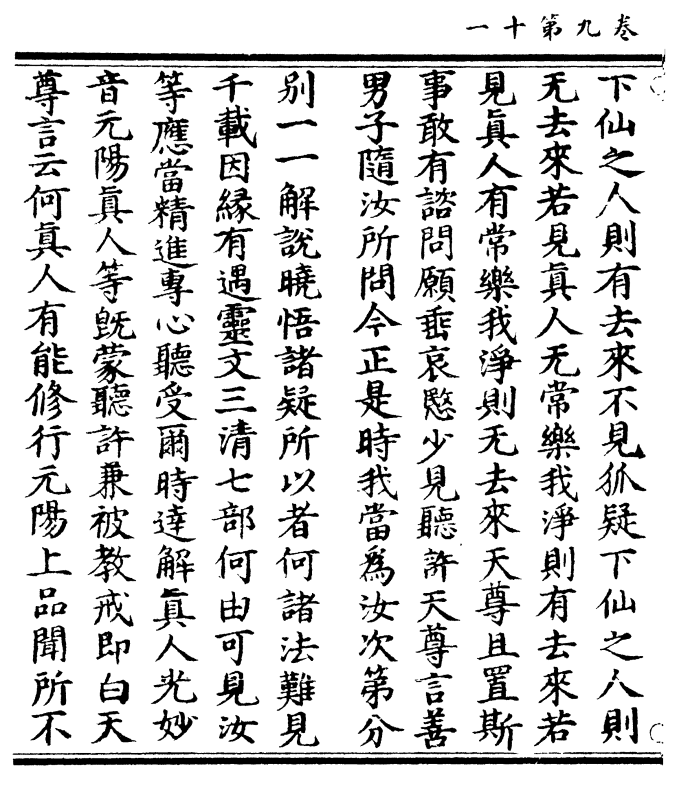 卷九第十一
下仙之人則有去來不見狐疑下仙之人則
无去來若見眞人无常樂我淨則有去來若
見眞人有常樂我淨則无去來天尊且置斯
事敢有諮問願垂哀愍少見聽許天尊言善
男子隨汝所問今正是時我當爲汝次第分
别一一解說曉悟諸疑所以者何諸法難見
千載因緣有遇靈文三清七部何由可見汝
等應當精進專心聽受爾時達解眞人光妙
音元陽眞人等旣蒙聽許兼被教戒即白天
尊言云何眞人有能修行元陽上品聞所不